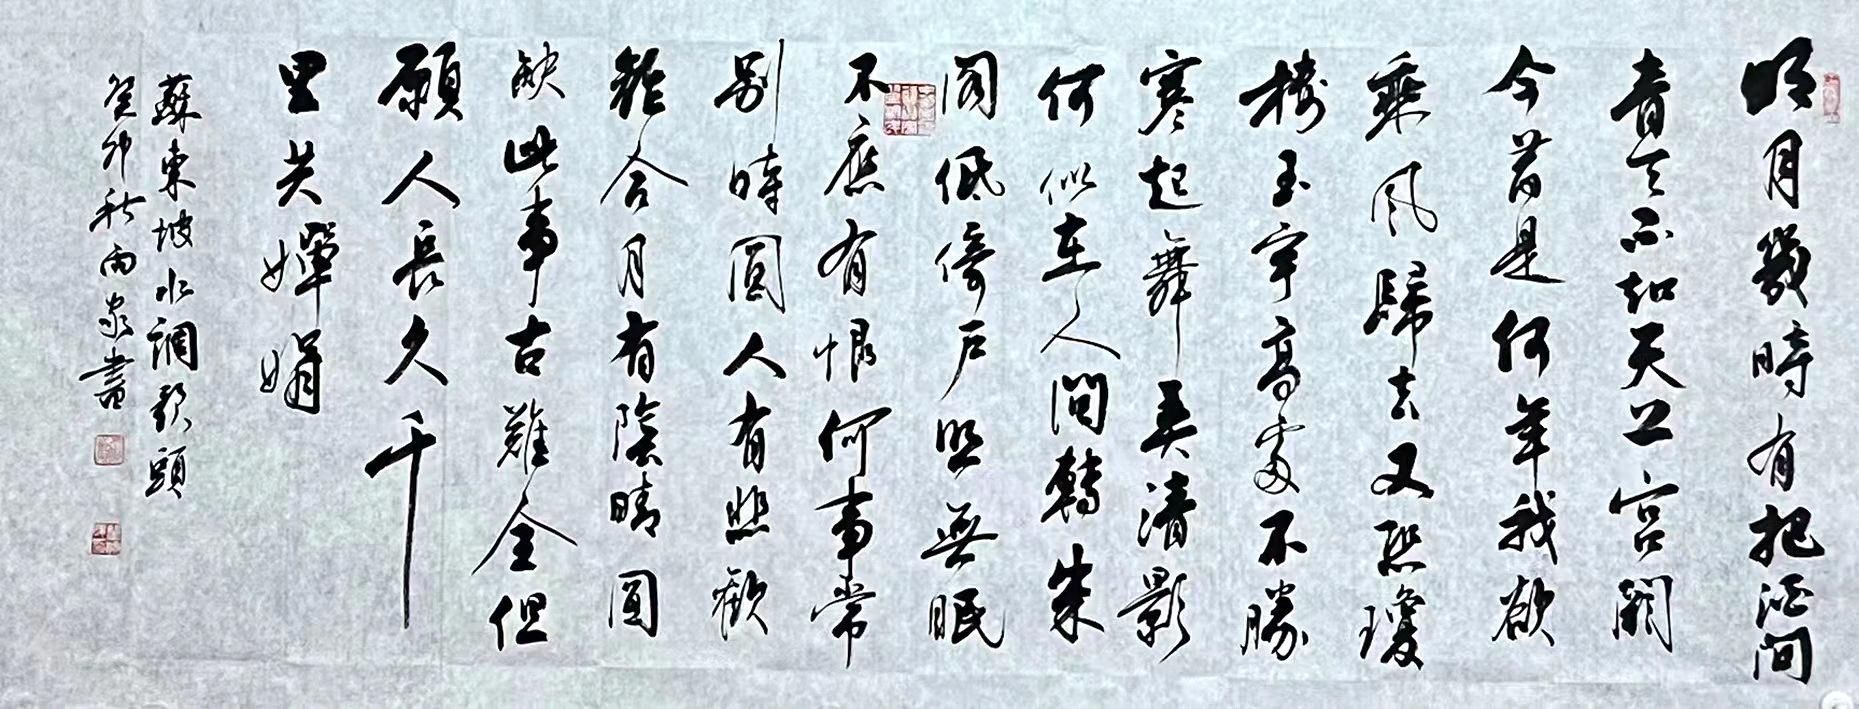 明月幾時有把酒問
青天不知天上宮闕
今昔是何年我欲
乘風歸去又恐瓊
樓玉宇高處不勝
寒起舞弄清影
何似在人間轉朱
閣低倚户照無眠
不應有恨何事常
别時圓人有悲歡
離合月有陰晴圓
缺此事古難全但
願人長久千
里共嬋娟
蘇東坡水調歌頭
癸卯秋書